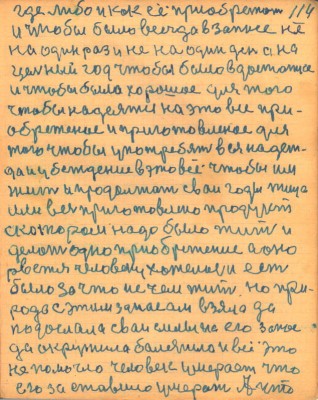 где либо и как её приобретат 114
и чтобы было всегда в запасе не
на один раз и не на один ден а на
целный год чтобы было в достатке
и чтобы была хорошое для того
чтобы надеятся на это все при-
обретеное и приготовленое для
того чтобы употреблят вся надеж-
да и убеждение в это всё чтобы им
жит и продолжат сваи годы
или вся приготовлено продукт
с которой надо было жит и
делат одно приобретение а оно
человеку хотелос и ест
было за что не чем жит. но при-
рода с этим запасам взяла да
подослала сваи силы на его запас
да окружила балезню и всё это
не помогло человек умерает что
его заставило умерат А что